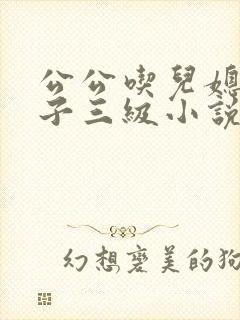 公公喫兒媳
子三級小說
幻想褒美的狗